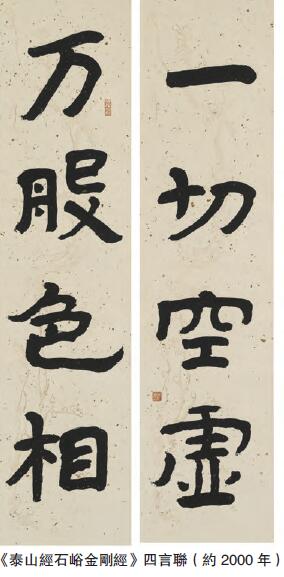 一切空虚
万般色相
《泰山經石峪金剛經》四言聯（約2000年）